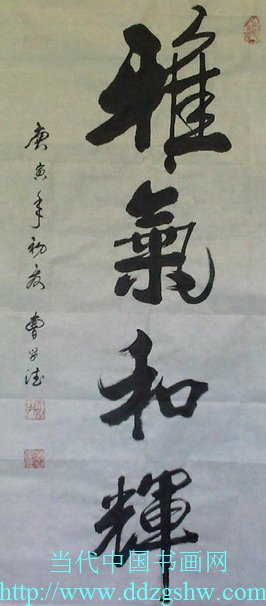 雅氣和輝
庚寅年初夏 曹學德
当代中国书画网
http://www.ddzgshw.com